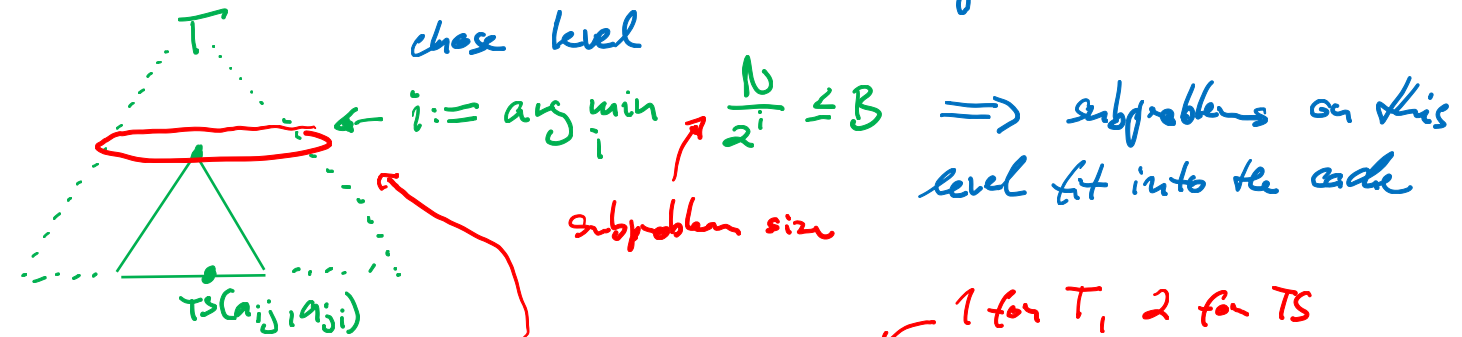 T
chose level
i := arg min_i N/2^i ≤ B ⟹ subproblems on this
level fit into the cache
subproblem size
TS(a_ij, a_ji)
1 for T, 2 for TS